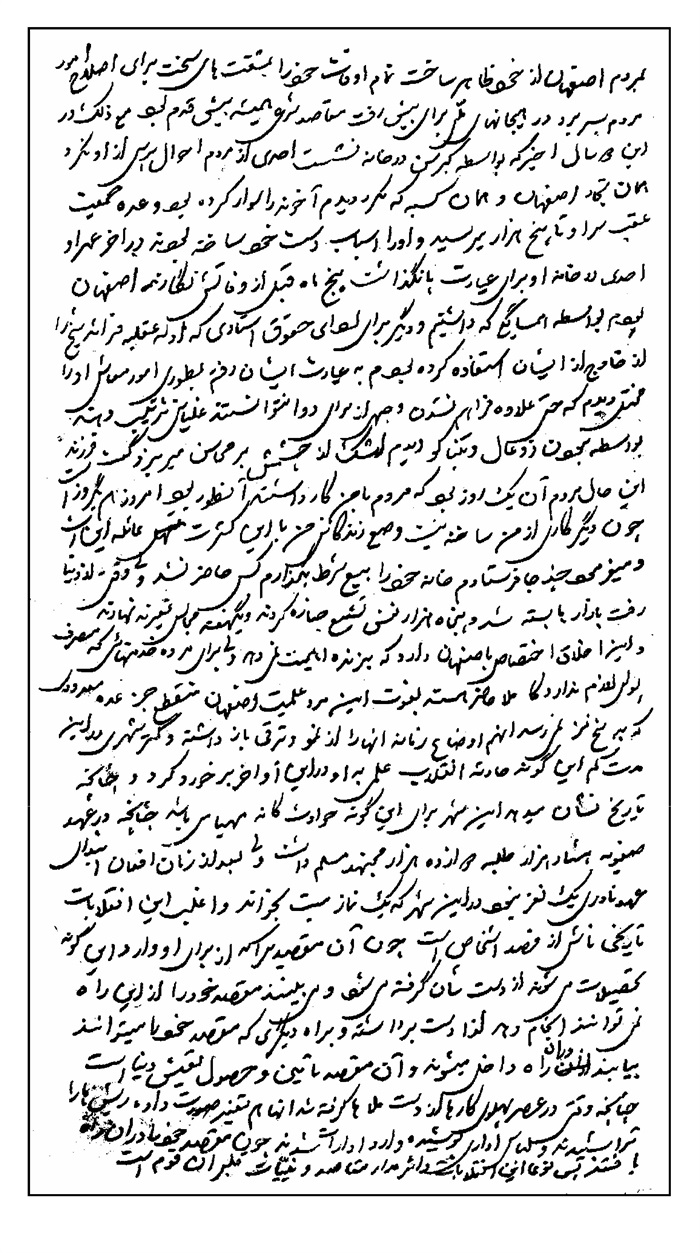 بمردم اصفهان از خود ظاهر ساخت تمام اوقات خود را بمشقت های سخت برای اصلاح امور
مردم بسر برد در هیجانهای ملّی برای پیش رفت مقاصد شرعی همیشه پیش قدم بود مع ذلک در
این سال اخیر که بواسطه کبر سن در خانه نشست احدی از مردم احوال پرسی از او نکرد
همان تجار اصفهان و همان کسبه که مکرر دیدم آخوند را سوار کرده بود و عده جمعیت
عقب سر او تا پنج هزار میرسید و او را اسباب دست خود ساخته بودند در آخر عمر او
احدی در خانه او برای عیادت پا نگذاشت پنج ماه قبل از وفاتش نگارنده اصفهان
بودم بواسطه همسایگی که داشتیم و دیگر برای ادای حقوق استادی که ادله عقلیه فرائد شیخ را
از خارج از ایشان استفاده کرده بودم به عیادت ایشان رفته بطوری امور معاش او را
مختل دیدم که حتی علاوه فراهم نشدن وجهی از برای دوا نتوانستند غلیانی ترتیب دهند
بواسطه نبودن زوغال و تنباکو دیدم اشک از چشمش بر محاسن میریزد گفت فرزند
این حال مردم آن یک روز بود که مردم با من کار داشتند آنطور بود امروز هم یکروز است
چون دیگر کاری از من ساخته نیست وضع زندگانی من با این کثرت عائله این است
و میرمحمد جند جا فرستادم خانه خود را ببیع شرط بگذارم کسی حاضر نشد ولی وقتی از دنیا
رفت بازار ها بسته شد و پنجاه هزار نفس تشیع جنازه کردند و یکهفته مجلس تعزیه نهادند
و این اخلاق اختصاص باصفهان دارد که بزنده اهمیت نمی دهد ولی برای مرده خدمتهائی که مصرف
پولی لازم ندارد کاملا حاضر هستند بفوت این مرد علمیت اصفهان منقطع جز عده معدودی
که به پنج نفر نمی رسد آنهم اوضاع زمانه آنها را از نمو و ترقی باز داشته و کمتر شهری در این
مدت کم این گونه حادثه انقلاب علمی به او در این أواخر برخورد کرد و چنانچه
تاریخ نشان میدهد این شهر برای این گونه حوادث کانه مهیا می باشد چنانچه در عهد
صفویه هشتاد هزار طلبه دوازده هزار مجتهد مسلم داشت ولی بعد از زمان افغان ابتدای
عهد نادری یک نفر نبود در این شهر که یک نماز میت بخواند و اغلب این انقلابات
تاریخی ناشی از قصد اشخاص است چون آن مقصدیرا که از برای او وارد این گونه
تحصیلات می شوند از دست شان گرفته می شود و می بینند مقصد خود را از این راه
نمی توانند انجام دهند لذا دست برداشته و براه دیگری که مقصد خود را میتوانند
بیابند از آن راه داخل میشوند و آن مقصد تأمین و حصول تعیش دنیا است
چنانچه وقتی در عصر پهلوی کارها که از دست ملا ها گرفته شد آنها هم تغییر صورت داده ریش ها را
تراشیدند و لباس اداری پوشیده وارد ادارات شدند چون مقصد خود را در آن راه
یافتند پس نوعا این انقلابات دائر مدار مقاصد و نیّات رهبران قوم است